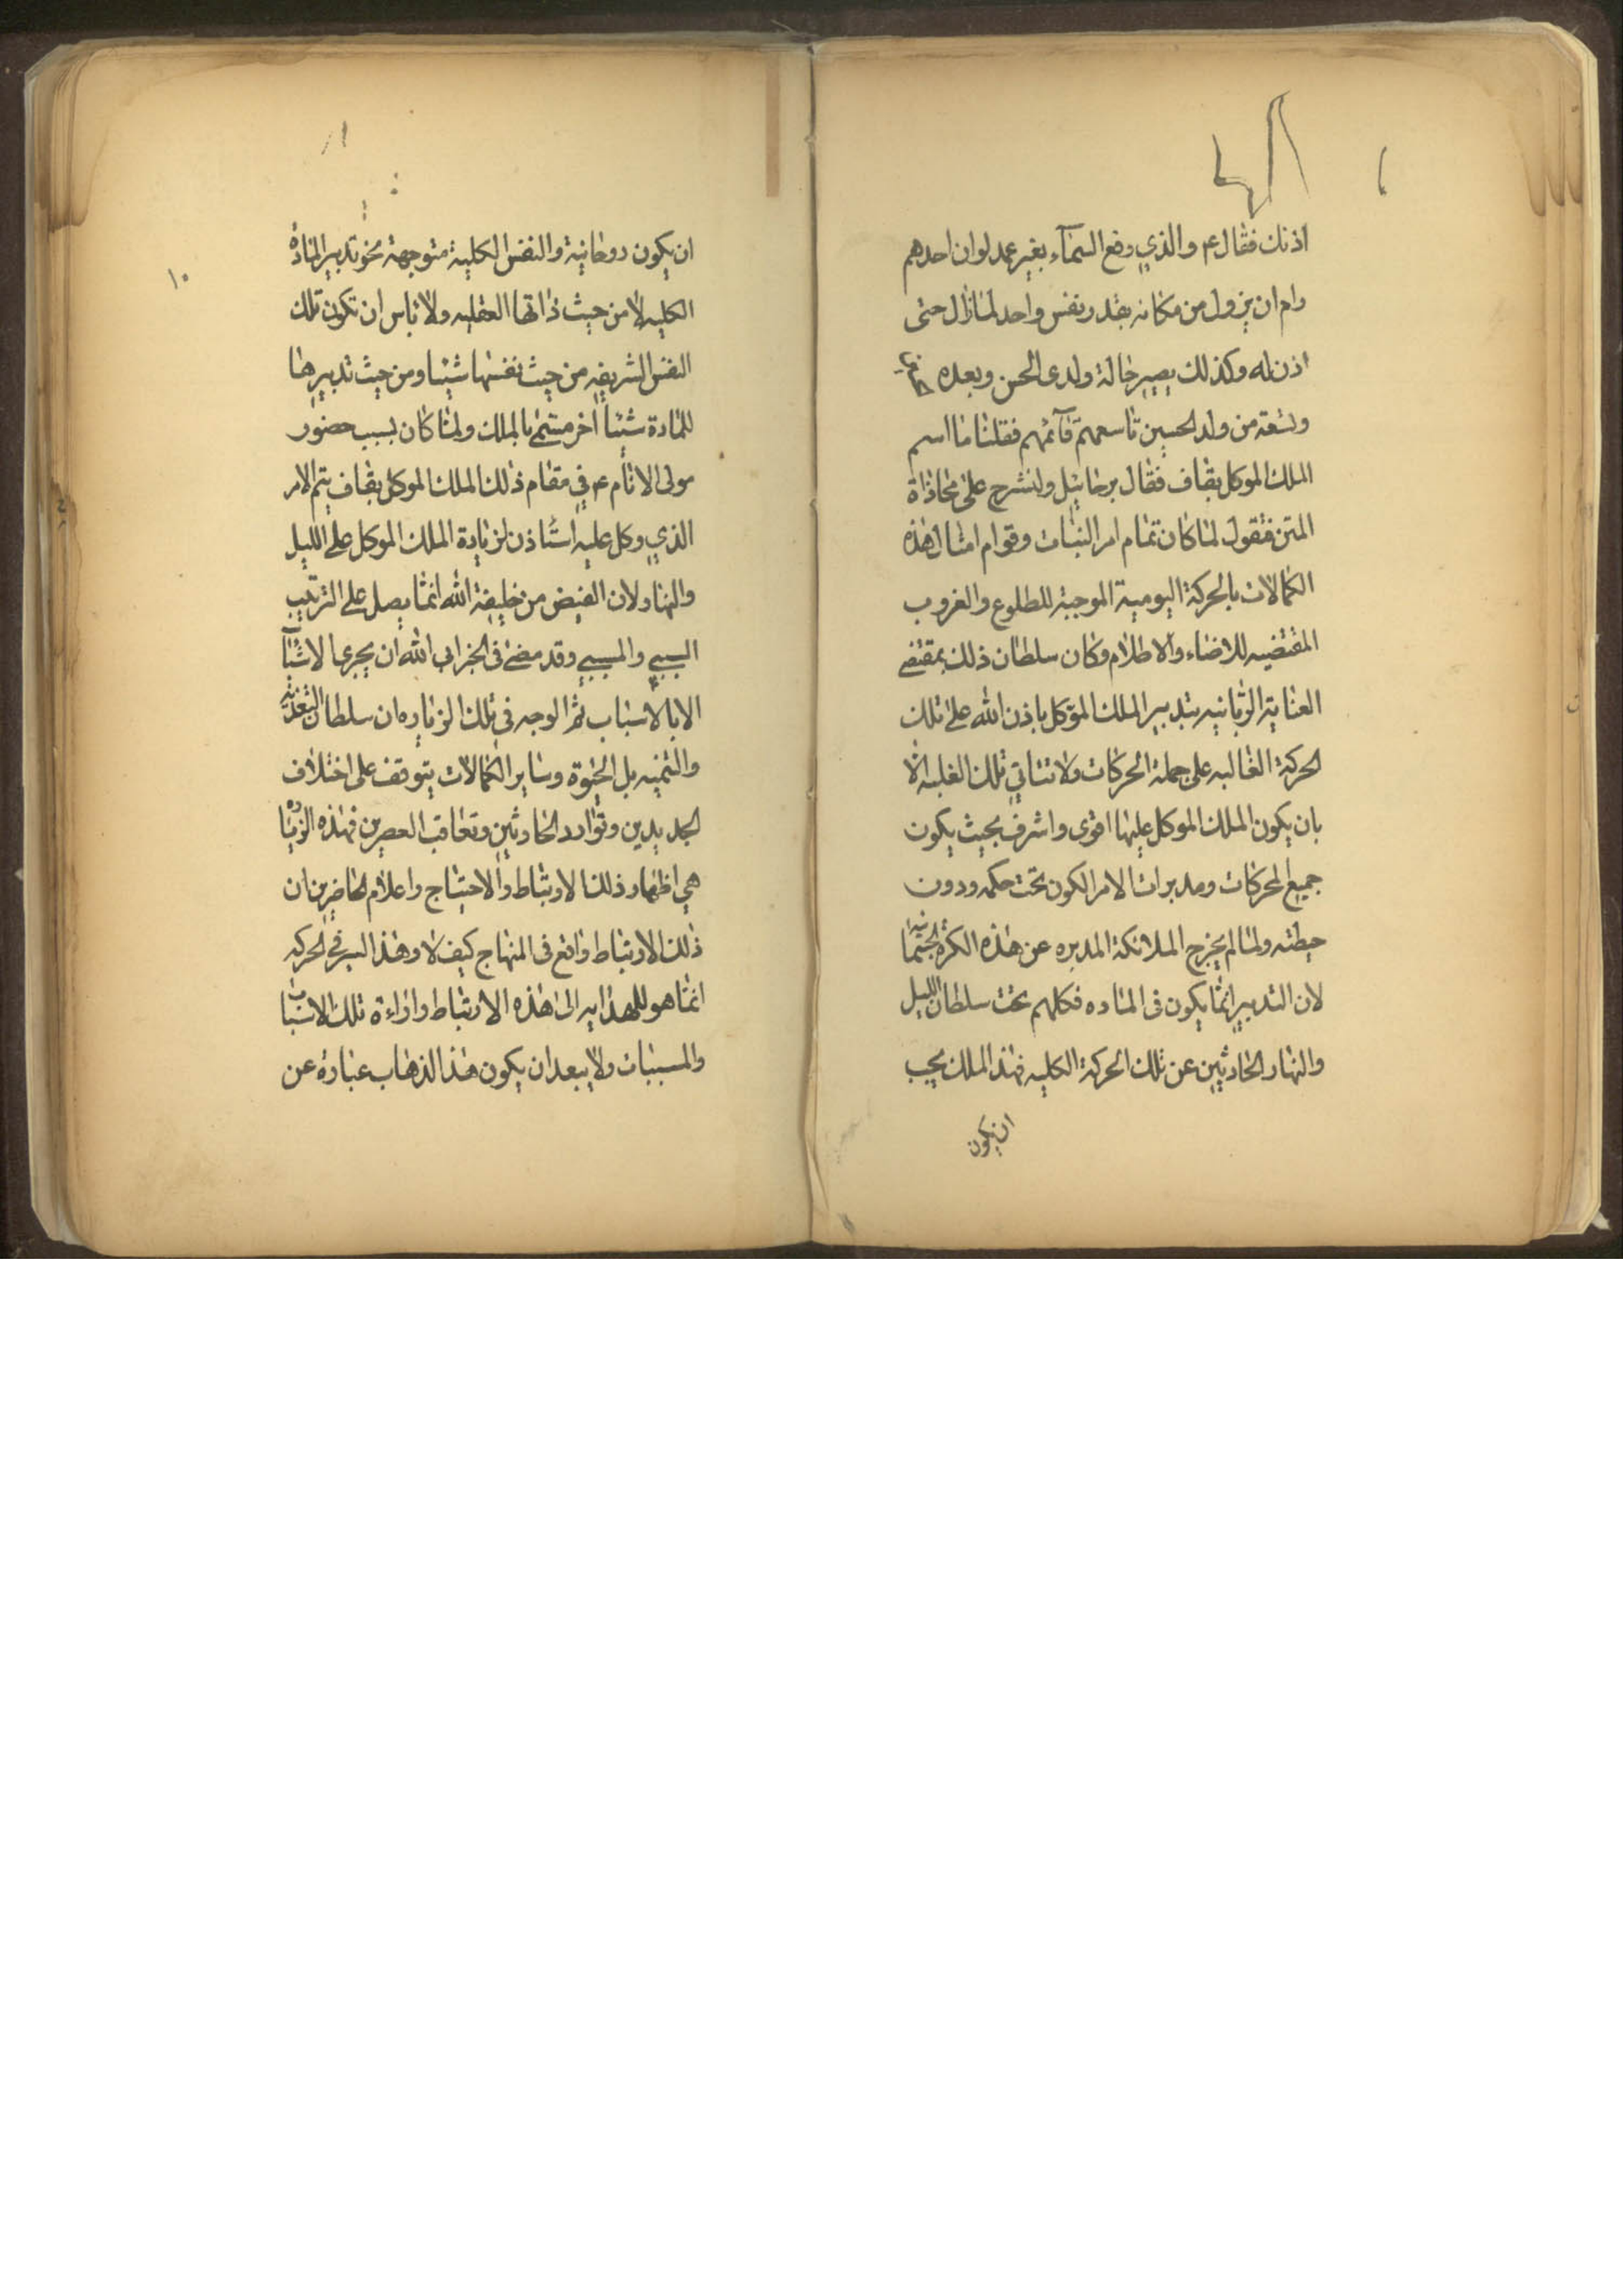 اذنك فقال ع والذي رفع السمآء بغير عمد لو ان احدهم
رام ان يزول من مكانه بقدر نفس واحد لما زال حتى
اذن له وكذلك يصير حالة ولدى الحسن وبعده
وتسعة من ولد الحسين تاسعهم قآئمهم فقلنا ما اسم
الملك الموكل بقاف فقال برخائيل ولنشرح على محاذاة
المتن فنقول لما كان تمام امر النبات وقوام امثال هذه
الكمالات بالحركة اليومية الموجبة للطلوع والغروب
المقتضيه للاضاء والاظلام وكان سلطان ذلك بمقتضى
العناية الربانيه بتدبير الملك المؤكل باذن الله على تلك
الحركة الغالبه على جملة الحركات ولا تتاتي تلك الغلبه الا
بان يكون الملك الموكل عليها اقوى واشرف بحيث يكون
جميع المحركات ومدبرات الامر الكون تحت حكمه ودون
حيطته ولما لم يخرج الملائكة المدبره عن هذه الكرة الجسمانيه
لان التدبير انما يكون فى الماده فكلهم تحت سلطان الليل
والنهار الحادثين عن تلك الحركة الكليه فهذا الملك يجب
ان يكون
١٠
ان يكون روحانية والنفس الكلية متوجهة نحو تدبير المادة
الكليه لا من حيث ذاتها العقليه ولا باس ان تكون تلك
النفس الشريفه من حيث نفسها شيئا ومن حيث تدبيرها
للمادة شيئاً اخر مسمى بالملك ولما كان بسبب حضور
مولى الانام ع في مقام ذلك الملك الموكل بقاف يتم الامر
الذي وكل عليه استاذن لزيادة الملك الموكل على الليل
والنهار لان الفيض من خليفة الله انما يصل على الترتيب
السببي والمسببي وقد مضى فى الخبر ابى الله ان يجرى الاشيآ
الا بالاسباب ثم الوجه في تلك الزياره ان سلطان التغذيه
والتنميه بل الحيوة وساير الكمالات يتوقف على اختلاف
الجديدين وتوارد الحادثين وتعاقب العصرين فهذه الزياره
هي اظهار ذلك الارتباط والاحتياج واعلام الحاضرين ان
ذلك الارتباط واقع فى المنهاج كيف لا وهذا السير والحركه
انما هو للهدايه الى هذه الارتباط واراءة تلك الاسباب
والمسببات ولا يبعد ان يكون هذا الذهاب عبارة عن